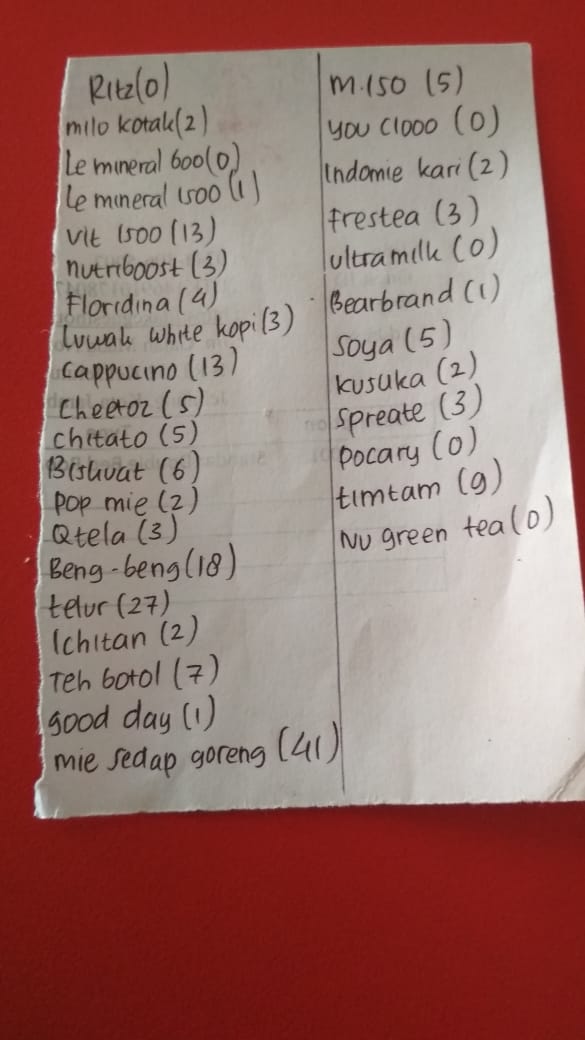 Ritz(0)
milo kotak(2)
Le mineral 600(0)
Le mineral 1500 (1)
vit 1500 (13)
nutriboost (3)
Floridina (4)
Luwak white kopi(3)
cappucino (13)
cheetoz (5)
chitato (5)
Biskuat (6)
pop mie (2)
Qtela (3)
Beng-beng(18)
telur (27)
Ichitan (2)
Teh botol (7)
good day (1)
mie sedap goreng (41)
M.150 (5)
you C1000 (0)
Indomie kari (2)
frestea (3)
ultramilk (0)
Bearbrand (1)
soya (5)
kusuka (2)
spreate (3)
pocary (0)
timtam (9)
Nu green tea (0)